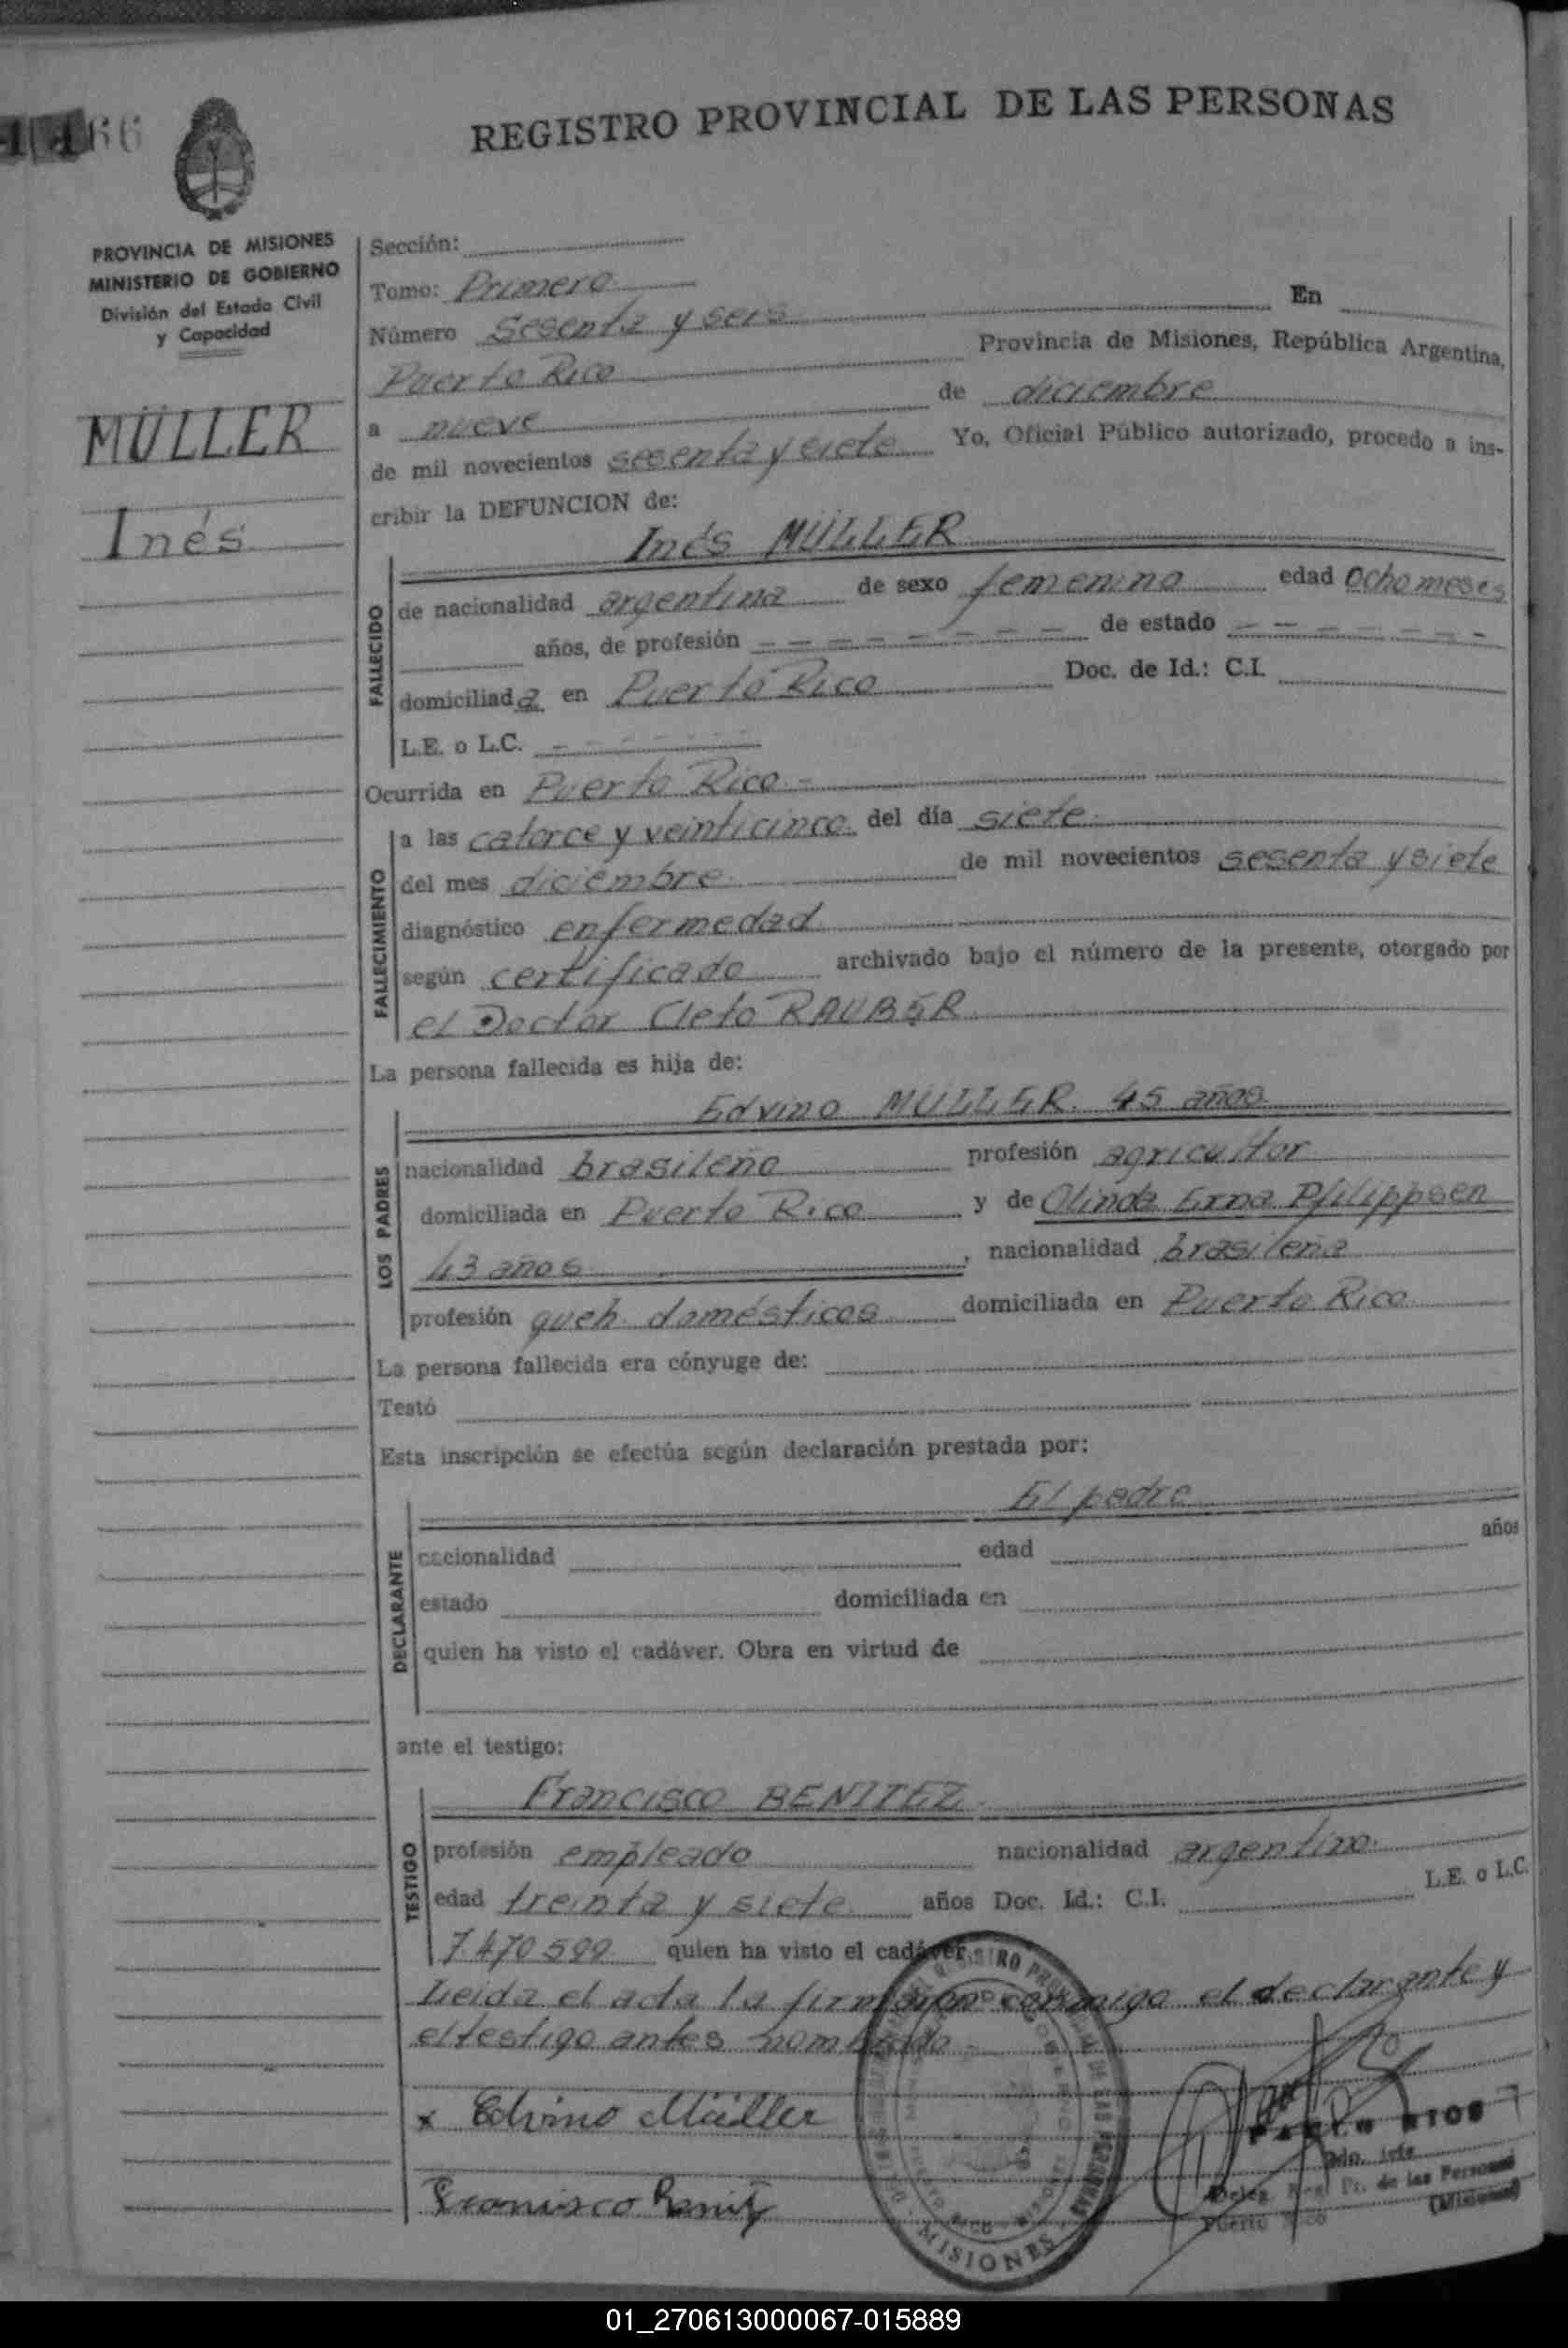 REGISTRO PROVINCIAL DE LAS PERSONAS
66
PROVINCIA DE MISIONES
MINISTERIO DE GOBIERNO
División del Estado Civil
y Capacidad
MÜLLER
Inés
Sección:
Tomo: Primero
Número Sesenta y seis En
Puerto Rico Provincia de Misiones, República Argentina,
a nueve de diciembre
de mil novecientos sesenta y siete Yo, Oficial Público autorizado, procedo a ins-
cribir la DEFUNCION de:
Inés MÜLLER
FALLECIDO
de nacionalidad argentina de sexo femenino edad Ocho meses
años, de profesión — — — — — — — de estado — — — — — —
domiciliada en Puerto Rico Doc. de Id.: C.I.
L.E. o L.C. — — — — — —
Ocurrida en Puerto Rico -
FALLECIMIENTO
a las catorce y veinticinco del día siete
del mes diciembre de mil novecientos sesenta y siete
diagnóstico enfermedad
según certificado archivado bajo el número de la presente, otorgado por
el Doctor Cleto RAUBER
La persona fallecida es hija de:
LOS PADRES
Edvino MULLER 45 años
nacionalidad brasileño profesión agricultor
domiciliada en Puerto Rico y de Olinda Erna Pfilippsen
43 años, nacionalidad brasileña
profesión queh. domésticos domiciliada en Puerto Rico
La persona fallecida era cónyuge de:
Testó
Esta inscripción se efectúa según declaración prestada por:
DECLARANTE
El padre
nacionalidad edad años
estado domiciliada en
quien ha visto el cadáver. Obra en virtud de
ante el testigo:
TESTIGO
Francisco BENITEZ
profesión empleado nacionalidad argentino
edad treinta y siete años Doc. Id.: C.I. L.E. o L.C.
7.470.599 quien ha visto el cadáver
Leida el acta la firman conmigo el declarante y
el testigo antes nombrado
x Edvino Müller
PABLO RIOS
2do. Jefe
Deleg. Reg. Pr. de las Personas
Puerto Rico (Misiones)
Francisco Benitz
MISIONES
01_270613000067-015889